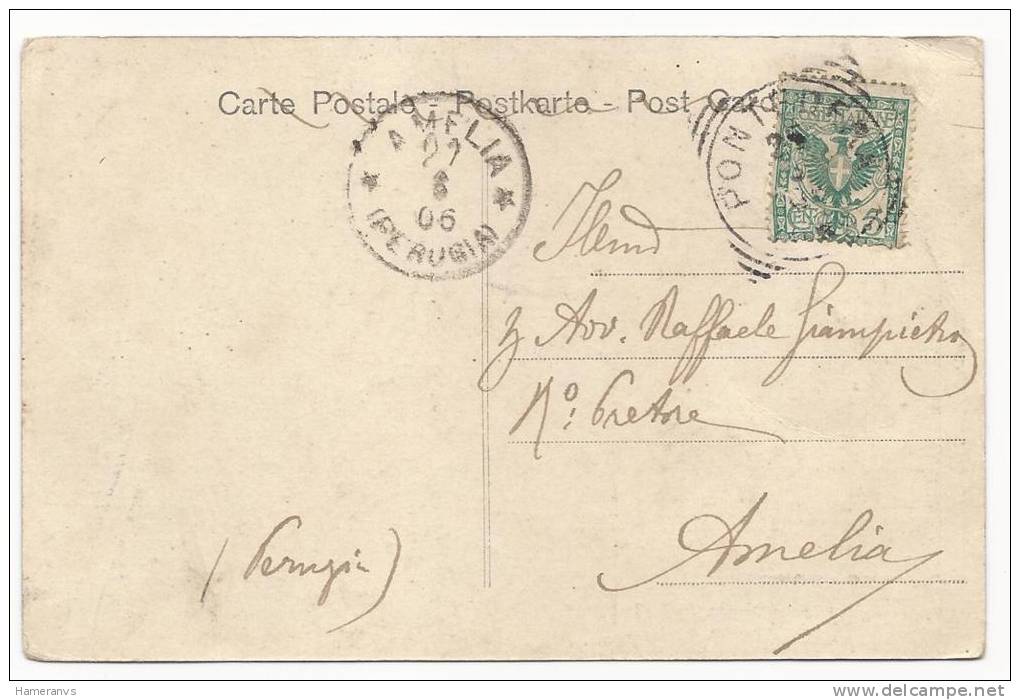 Carte Postale - Postkarte - Post Card
AMELIA
27
06
(PERUGIA)
PONT
POSTE ITALIANE
CEN. 5
Ill.mo
Avv. Raffaele Giampietro
R.o: Pretore
Amelia
(Perugia)
Hameranvs
www.delcampe.net